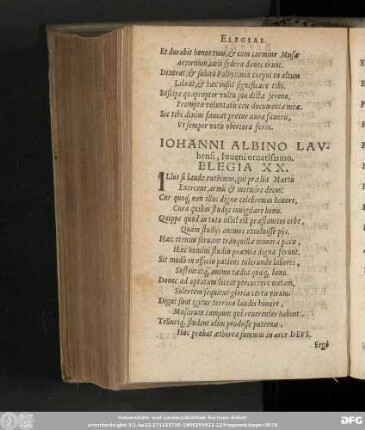 ELEGIAE
Et durabit honos tuus, & cum carmine Musæ
Aeternùm, axis sydera donec erunt.
Dixerat, & subitò Polhymnia corpus in altum
Librat, & hæc iussit significare tibi.
Suscipe quapropter vultu pia dicta sereno,
Prompta voluntatis ceu documenta meæ.
Sic tibi diuini faueat precor aura fauoris,
Vt semper votis vberiora feras.
IOHANNI ALBINO LAV-
bensi, Iuueni ornatissimo.
ELEGIA XX.
ILlos si laude euehimus, qui prælia Martis
Exercent, armis & meruere decus:
Cur quoq, non illos digno celebremus honore,
Cura quibus studijs inuigilare bonis.
Quippe quid in toto est præstantius orbe,
Quàm studijs animos excoluisse pijs.
Hæc etenim seruant tranquillæ munera pacis,
Hæc homini studio præmia digna ferunt.
Sit modò in officio patiens tolerando labores,
Sustineatq, animo tædia quæq, bono.
Donec ad optatam liceat percurrere metam,
Solertem sequitur gloria certa virum.
Digni sunt igitur terreno laudis honore,
Musarum campum qui reuerenter habent.
Tellurìq, student olim prodesse paternæ,
Hoc probat ætherea summus in arce DEVS.
Ergò
Universitäts- und Landesbibliothek Sachsen-Anhalt
DFG